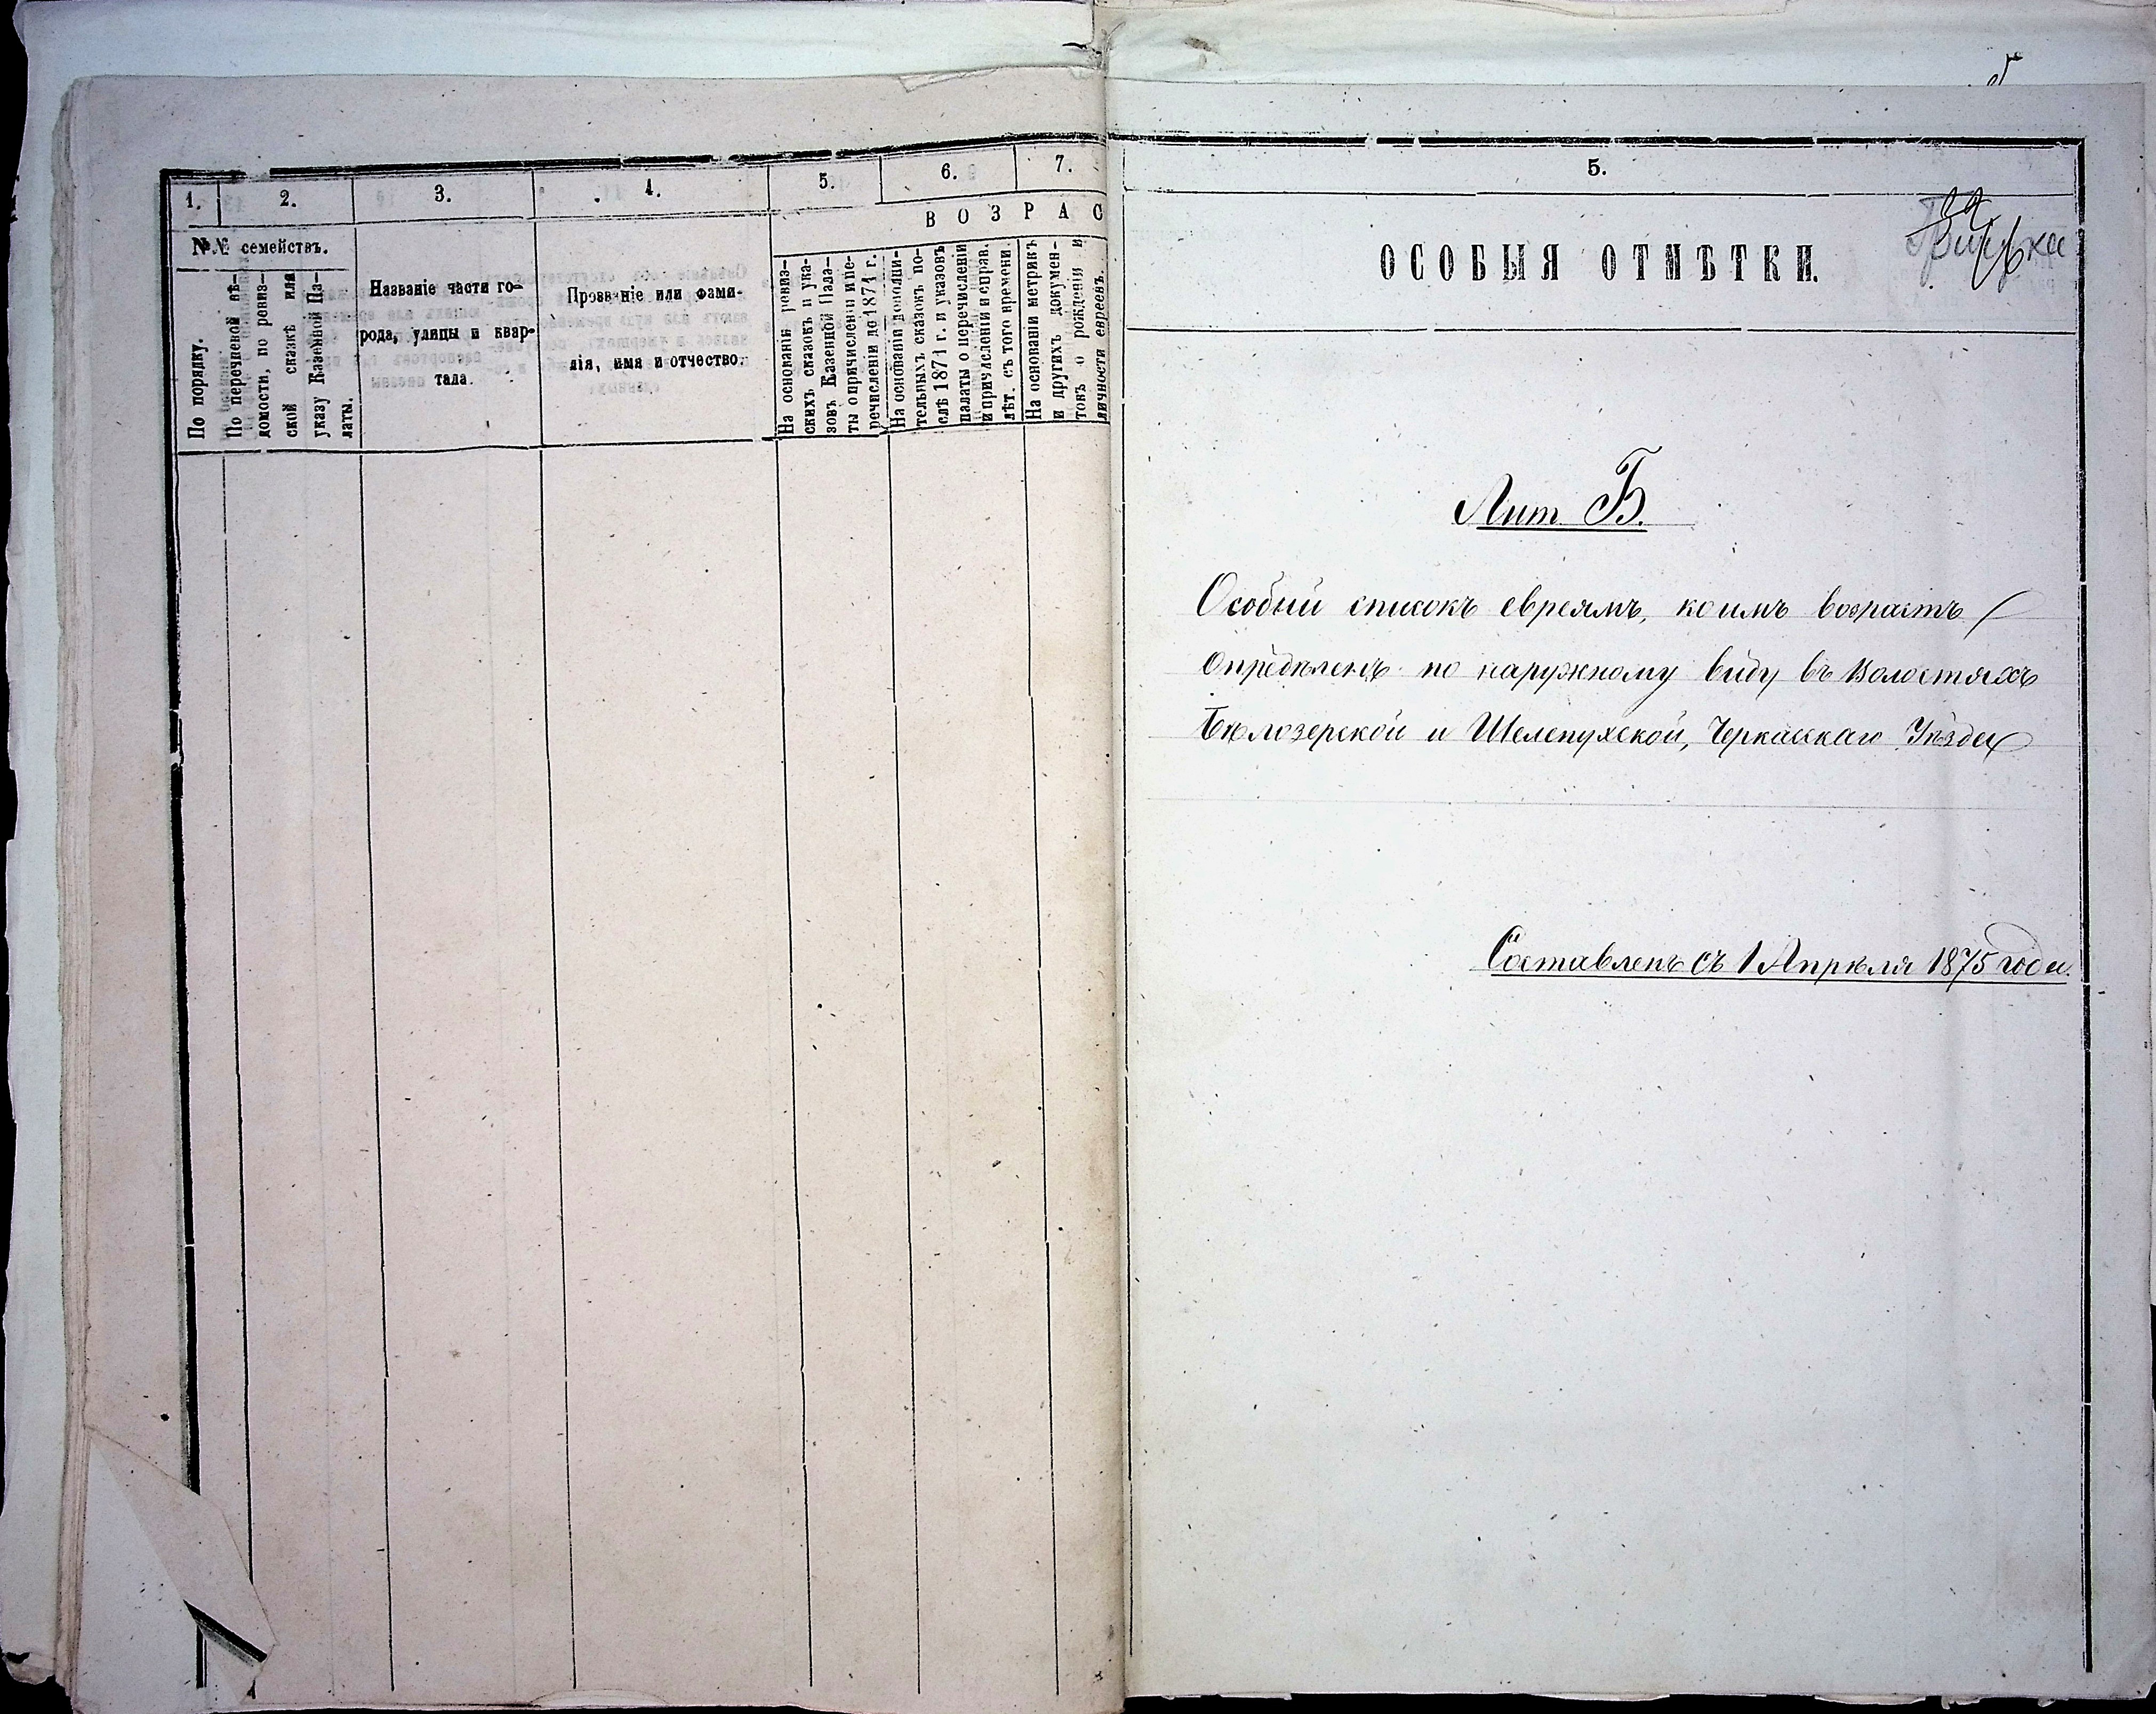 1.
2.
3.
4.
5.
6.
7.
ВОЗРАС
№№ семействъ.
По порядку.
По перечневой вѣ-
домости, по ревиз-
ской сказкѣ или
указу Казенной Па-
латы.
Названіе части го-
рода, улицы и квар-
тала.
Прозваніе или фами-
лія, имя и отчество.
На основаніи ревиз-
скихъ сказокъ и ука-
зовъ Казенной Пала-
ты о причисленіи и пе-
речисленіи до 1871 г.
На основаніи дополни-
тельныхъ сказокъ по-
слѣ 1871 г. и указовъ
палаты о перечисленіи
и причисленіи и справ.
лѣт. съ того времени.
На основаніи метрикъ
и другихъ докумен-
товъ о рожденіи и
личности евреевъ.
5.
ОСОБЫЯ ОТМѢТКИ.
Лит Б.
Особый списокъ евреямъ, коимъ возрастъ
опредѣленъ по наружному виду въ Волостяхъ
Бѣлозерской и Шелепухской, Черкасскаго Уѣзда
Составленъ съ 1 Апрѣля 1875 года.